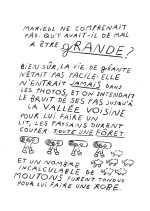 MARIEDL NE COMPRENAIT
PAS. QU'Y AVAIT-IL DE MAL
À ÊTRE GRANDE ?
BIEN SÛR, LA VIE DE GÉANTE
N'ÉTAIT PAS FACILE : ELLE
N'ENTRAIT JAMAIS DANS
LES PHOTOS, ET ON ENTENDAIT
LE BRUIT DE SES PAS JUSQU'À
LA VALLÉE VOISINE.
POUR LUI FAIRE UN
LIT, LES PAYSANS DURENT
COUPER TOUTE UNE FORÊT
ET UN NOMBRE
INCALCULABLE DE
MOUTONS FURENT TONDUS
POUR LUI FAIRE UNE ROBE.